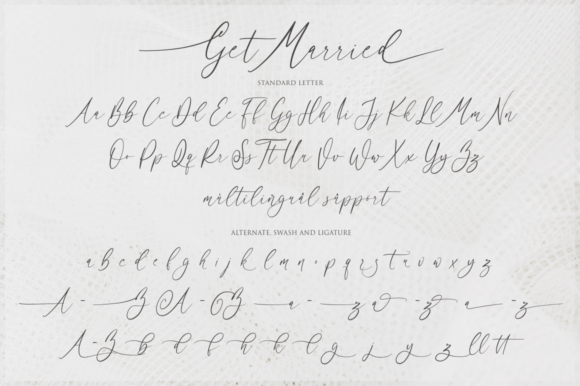 Get Married
STANDARD LETTER
Aa Bb Cc Dd Ee Ff Gg Hh Ii Jj Kk Ll Mm Nn
Oo Pp Qq Rr Ss Tt Uu Vv Ww Xx Yy Zz
multilingual support
ALTERNATE, SWASH AND LIGATURE
a b c d e f g h i j k l m n o p q r s t u v w x y z
A - Z A - Z a - z a - z a - z
A - Z b d f h k l g j y z ll tt